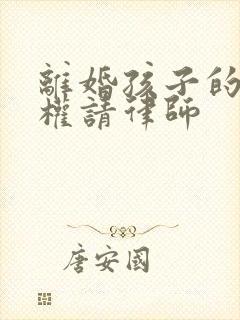 離婚孩子的
權請律師
唐安國